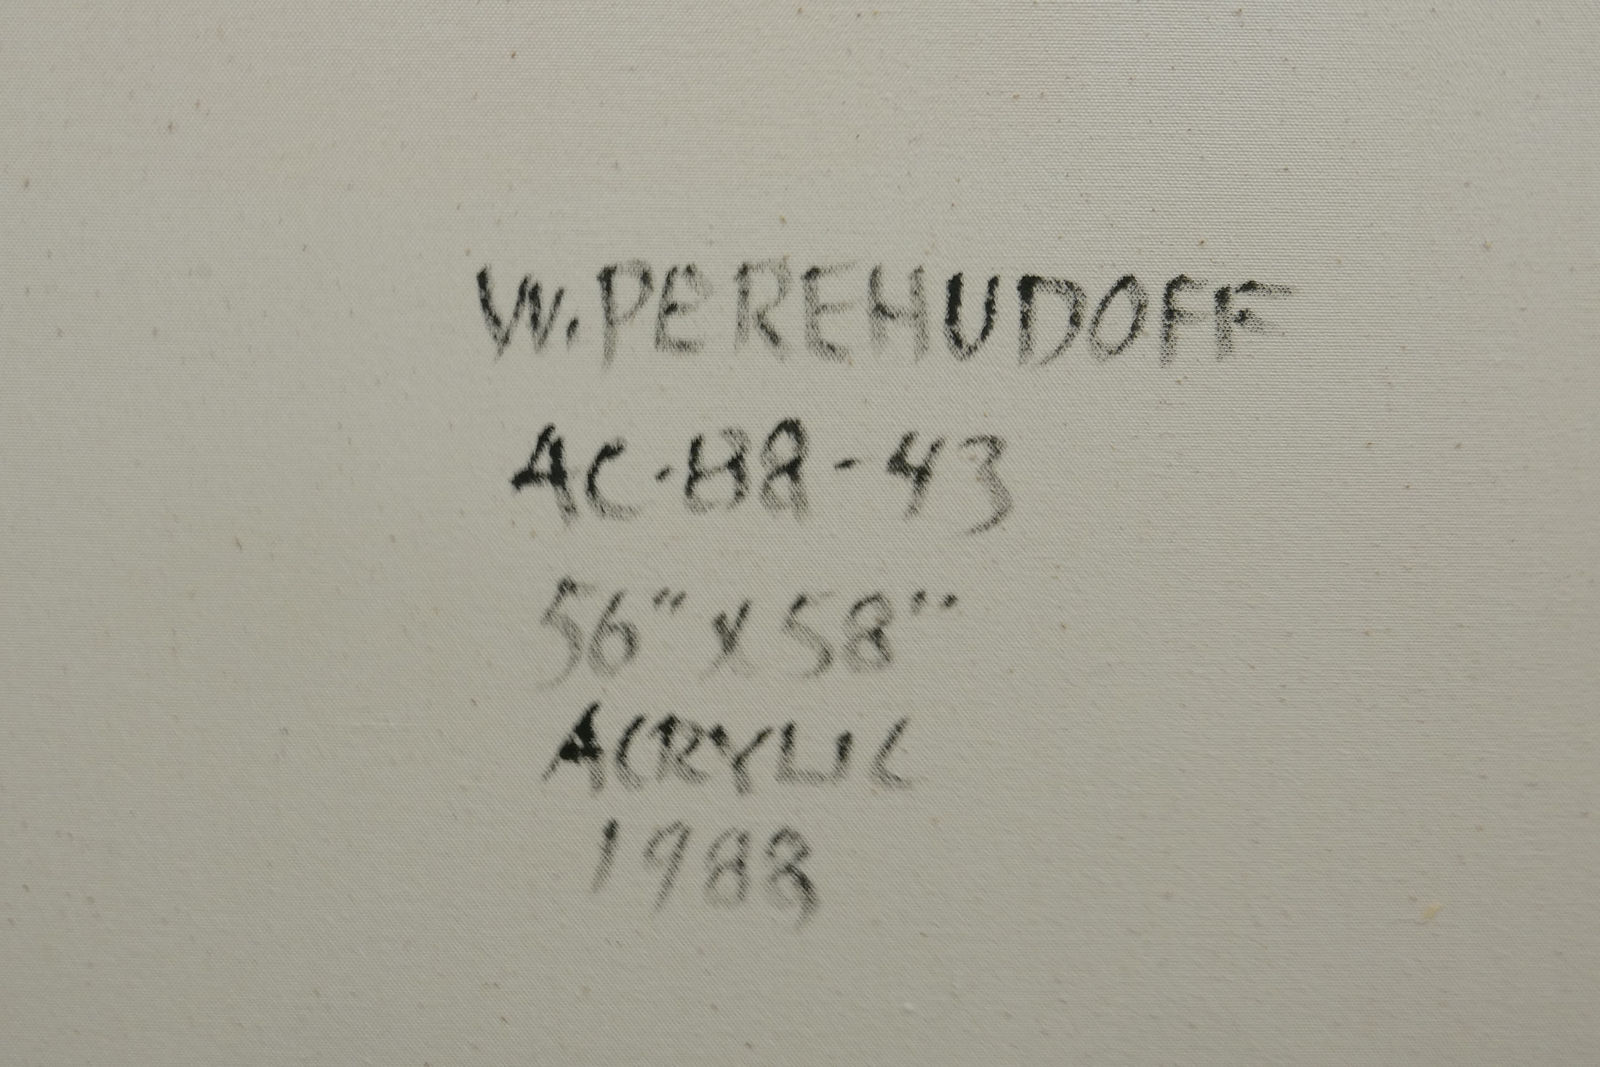 W. PEREHUDOFF
AC-88-43
56" x 58"
ACRYLIC
1988